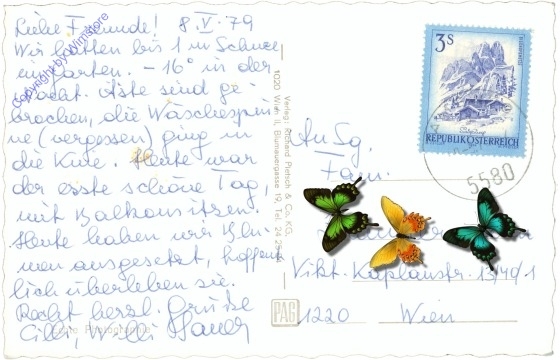 Liebe Freunde! 8.V.79
Wir hatten bis 1 m Schnee
im Garten. -16° in der
Nacht. Äste sind ge-
brochen, die Wäschespin-
ne (vergessen) ging in
die Knie. Heute war
der erste schöne Tag,
mit Balkonsitzen.
Heute haben wir Blu-
men ausgesetzt, hoffent-
lich überleben sie.
Recht herzl. Grüße
Cilli, Willi
Copyright by Wimstore
Verlag: Richard Pietsch & Co. KG.
1020 Wien II, Blumauergasse 19, Tel. 24 25
PAG
3S
REPUBLIK ÖSTERREICH
5580
An Sg.
Fam.
Vikt. Kaplanstr.
1220 Wien